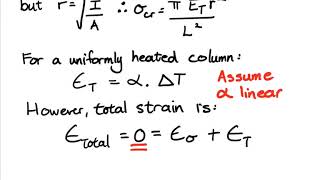 but r = √(I/A) ∴ σcr = π² E_T r² / L²
For a uniformly heated column:
ϵ_T = α. ΔT Assume α linear
However, total strain is:
ϵ_Total = 0 = ϵ_σ + ϵ_T